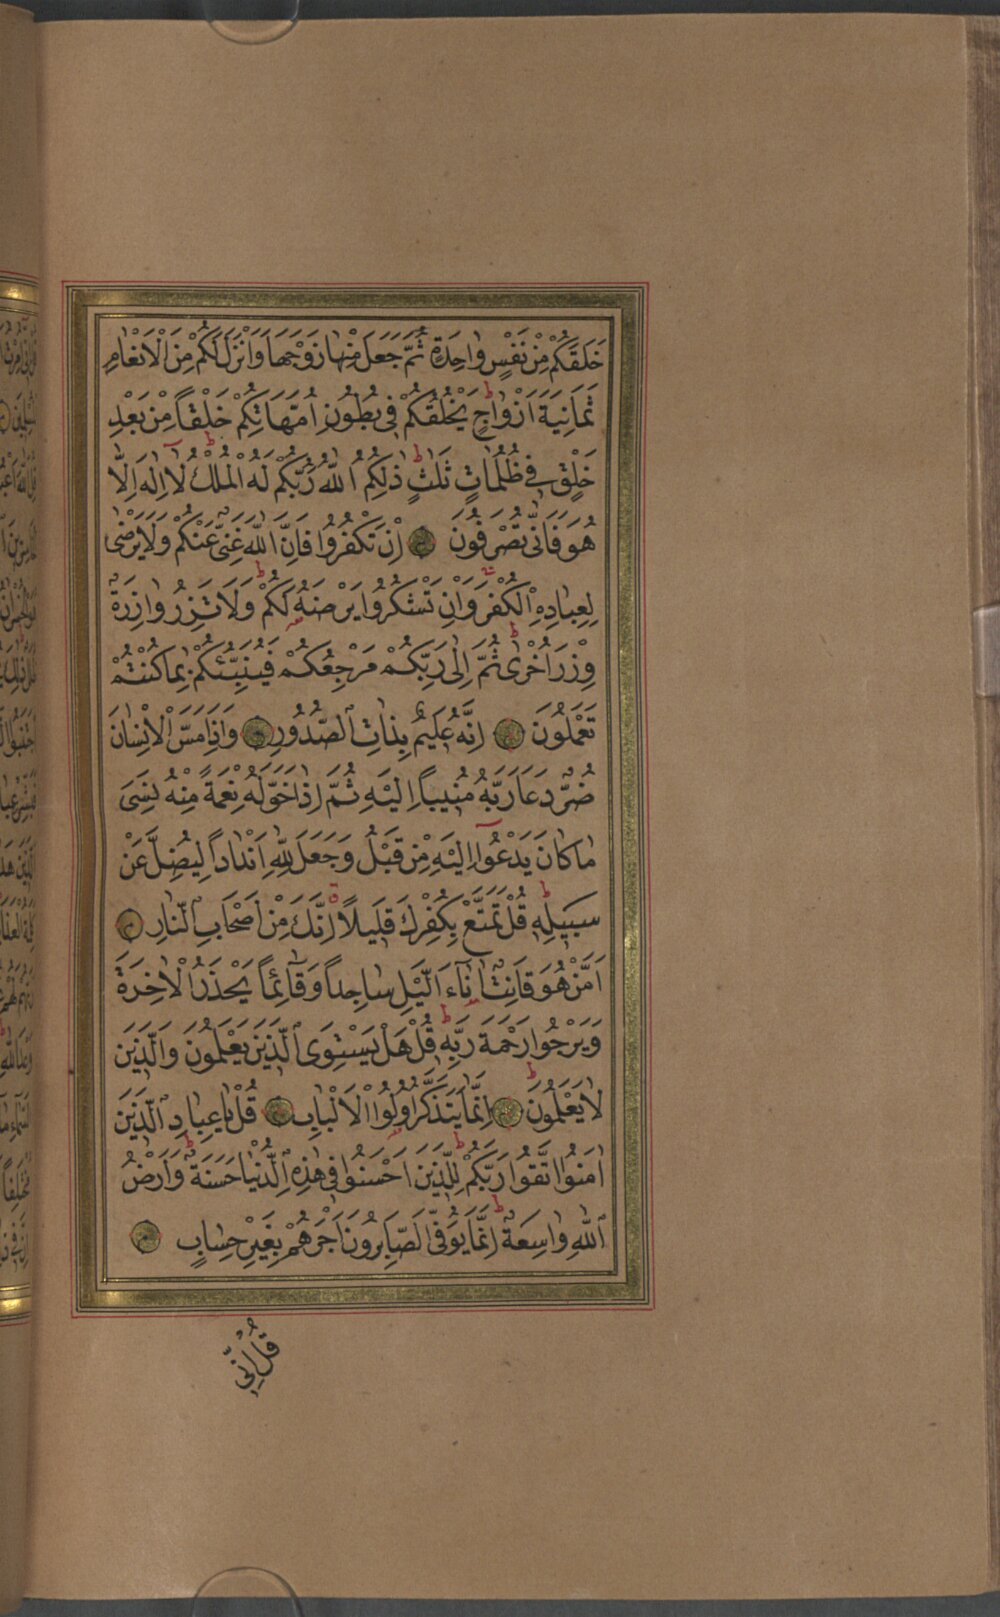 خَلَقَكُمْ مِنْ نَفْسٍ وَاحِدَةٍ ثُمَّ جَعَلَ مِنْهَا زَوْجَهَا وَاَنْزَلَ لَكُمْ مِنَ الْاَنْعَامِ
ثَمَانِيَةَ اَزْوَاجٍ يَخْلُقُكُمْ فِى بُطُونِ اُمَّهَاتِكُمْ خَلْقاً مِنْ بَعْدِ
خَلْقٍ فِى ظُلُمَاتٍ ثَلٰثٍ ذٰلِكُمُ اللّٰهُ رَبُّكُمْ لَهُ الْمُلْكُ لَٓا اِلٰهَ اِلَّا
هُوَ فَاَنّٰى تُصْرَفُونَ اِنْ تَكْفُرُوا فَاِنَّ اللّٰهَ غَنِىٌّ عَنْكُمْ وَلَا يَرْضٰى
لِعِبَادِهِ الْكُفْرَ وَاِنْ تَشْكُرُوا يَرْضَهُ لَكُمْ وَلَا تَزِرُ وَازِرَةٌ
وِزْرَ اُخْرٰى ثُمَّ اِلٰى رَبِّكُمْ مَرْجِعُكُمْ فَيُنَبِّئُكُمْ بِمَا كُنْتُمْ
تَعْمَلُونَ اِنَّهُ عَلِيمٌ بِذَاتِ الصُّدُورِ وَاِذَا مَسَّ الْاِنْسَانَ
ضُرٌّ دَعَا رَبَّهُ مُنِيباً اِلَيْهِ ثُمَّ اِذَا خَوَّلَهُ نِعْمَةً مِنْهُ نَسِىَ
مَا كَانَ يَدْعُٓوا اِلَيْهِ مِنْ قَبْلُ وَجَعَلَ لِلّٰهِ اَنْدَاداً لِيُضِلَّ عَنْ
سَبِيلِهِ قُلْ تَمَتَّعْ بِكُفْرِكَ قَلِيلاً اِنَّكَ مِنْ اَصْحَابِ النَّارِ
اَمَّنْ هُوَ قَانِتٌ اٰنَٓاءَ الَّيْلِ سَاجِداً وَقَٓائِماً يَحْذَرُ الْاٰخِرَةَ
وَيَرْجُوا رَحْمَةَ رَبِّهِ قُلْ هَلْ يَسْتَوِى الَّذِينَ يَعْلَمُونَ وَالَّذِينَ
لَا يَعْلَمُونَ اِنَّمَا يَتَذَكَّرُ اُولُوا الْاَلْبَابِ قُلْ يَا عِبَادِ الَّذِينَ
اٰمَنُوا اتَّقُوا رَبَّكُمْ لِلَّذِينَ اَحْسَنُوا فِى هٰذِهِ الدُّنْيَا حَسَنَةٌ وَاَرْضُ
اللّٰهِ وَاسِعَةٌ اِنَّمَا يُوَفَّى الصَّابِرُونَ اَجْرَهُمْ بِغَيْرِ حِسَابٍ
قُلْ اِنِّى